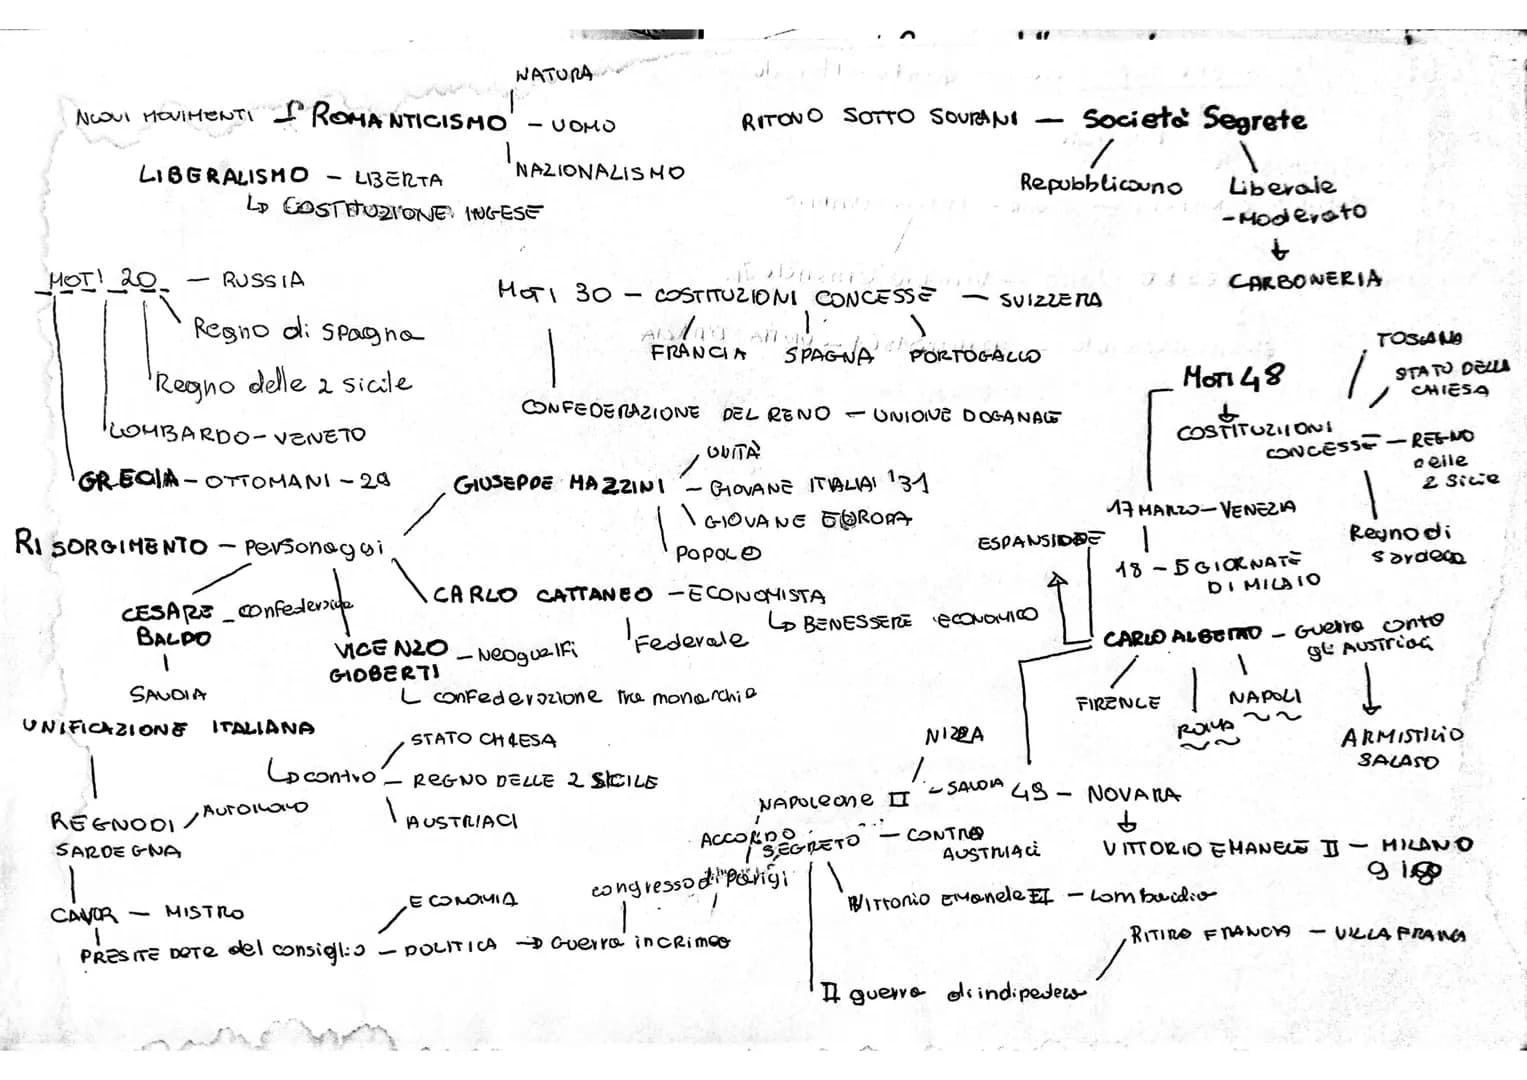 NATURA
NUOVI MOVIMENTI ROMANTICISMO - UOMO
NAZIONALISMO
LIBERALISMO - LIBERTA
↳ COSTITUZIONE INGESE
RITONO SOTTO SOVRANI — Società Segrete
Repubblicano
Liberale
-Moderato
↓
CARBONERIA
MOTI 20 - RUSSIA
Regno di Spagna
Regno delle 2 sicile
LOMBARDO-VENETO
GRECIA - OTTOMANI - 29
MOTI 30 - COSTITUZIONI CONCESSE - SVIZZERA
FRANCIA SPAGNA PORTOGALLO
CONFEDERAZIONE DEL RENO - UNIONE DOGANALE
MOTI 48
↓
COSTITUZIONI
CONCESSE - REGNO
delle
2 Sicie
TOSCANA
STATO DELLA
CHIESA
Regno di
Sardegn
17 MARZO - VENEZIA
18 - 5 GIORNATE
DI MILAIO
ESPANSIONE
CARLO ALBERTO - Guerra conto
gli AUSTRIACI
FIRENCE
ROMA
NAPOLI
↓
ARMISTIZIO
SALASO
49 - NOVARA
↓
VITTORIO EMANELE II - MILANO
RISORGIMENTO - personaggi
GIUSEPPE MAZZINI
UNITÀ
- GIOVANE ITALIA '31
GIOVANE EUROPA
POPOLO
CARLO CATTANEO - ECONOMISTA
↳ BENESSERE ECONOMICO
Federale
CESARE
BALDO
- confederale
SAVOIA
VICENZO
GIOBERTI
- Neoguelfi
confederazione tra monarchie
UNIFICAZIONE ITALIANA
↳ contro
STATO CHIESA
- REGNO DELLE 2 SICILE
AUSTRIACI
REGNO DI
SARDEGNA
AUTONOMO
CAVOR - MISTRO
PRESITE DOTE del consiglio - POLITICA → Guerra in crimea
ECONOMIA
congresso di Parigi
ACCORDO
SEGRETO
NAPOLEONE II
NIZZA
- SAVOIA
- CONTRO
AUSTRIACI
Vittorio Emanele II - Lombardia
II guerra di indipedeza
RITIRO FRANCIA - VILLAFRANCA